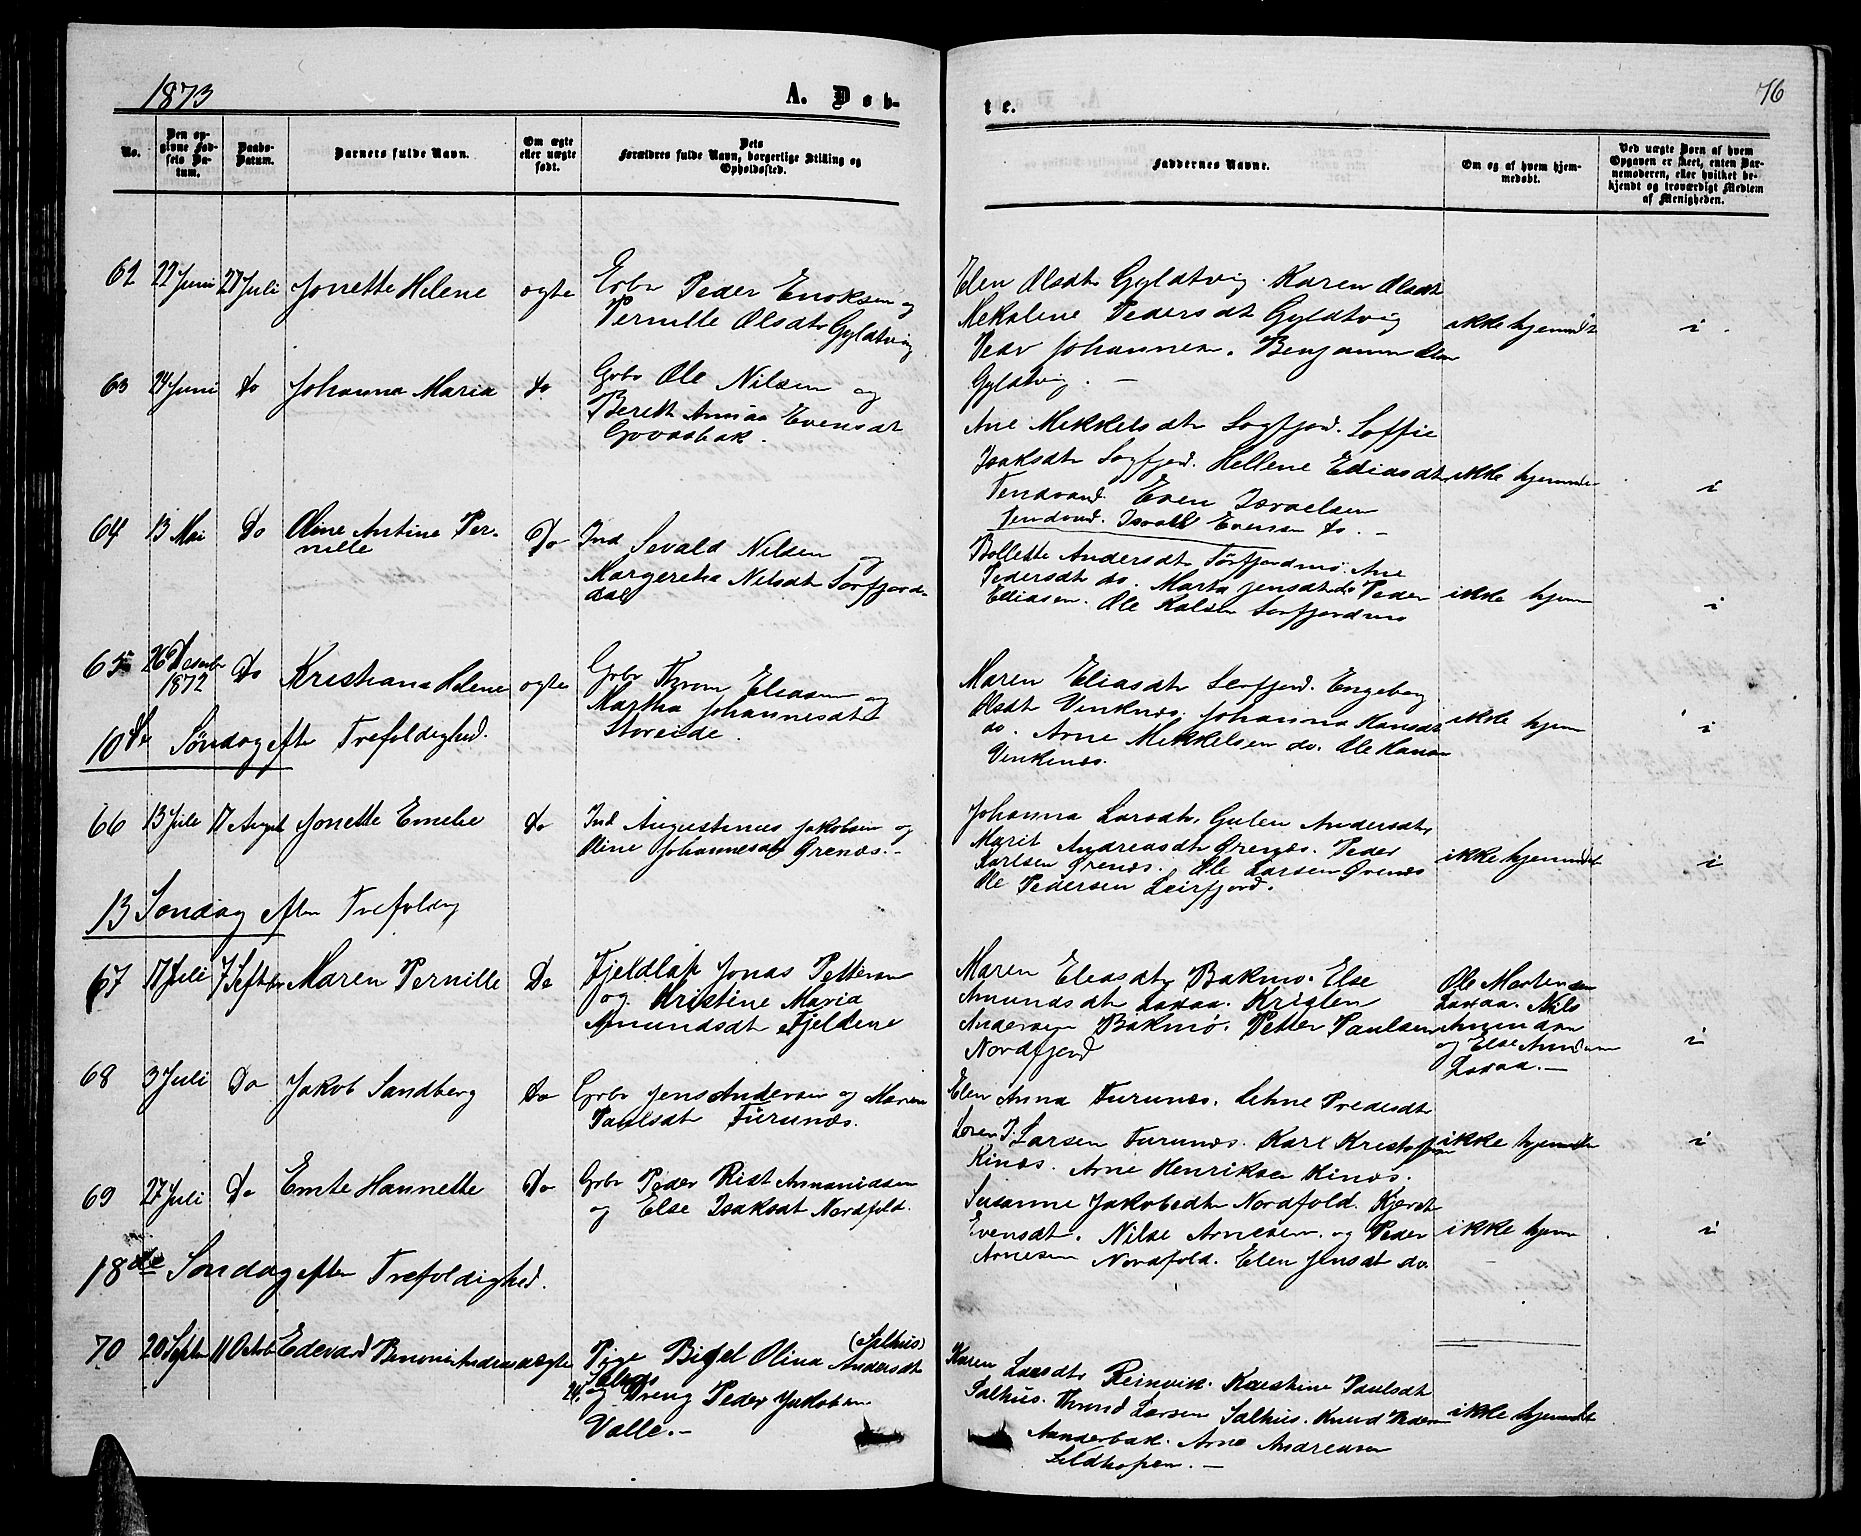 1873
A. Døb-
te.
76
No.
Den op-
givne Fød-
sels Da-
tum.
Daabs-
Datum.
Barnets fulde Navn.
Om ægte
eller uægte
født.
Dets
Forældres fulde Navn, borgerlige Stilling og
Opholdssted.
Faddernes Navne.
Om og af hvem hjem-
medøbt.
Ved uægte Børn af hvem
Opgaven er skeet, enten Bar-
nemoderen, eller hvilket be-
kjendt og troværdigt Medlem
af Menigheden.
62 22 Juni 27 Juli Jonette Helene ægte Grbr Peder Enoksen og
Pernille Olsdtr Gyldtvig
Elen Olsdtr Gyldtvig. Karen Olsdt
Mekaline Pedersdt Gyldtvig
Peder Johannesen. Benjamin Olsen
Gyldtvig. —
ikke hjemmdt
i
63 24 Juni do Johanna Maria do Grbr Ole Nilsen og
Berith Annaa Evensdt
Ane Mekkelsdtr Sagfjord. Soffie
Isaksdtr Sagfjord. Hellene Ediasdt
Tendvand. Even Israelsen
Tendvand. Israel Evensen do. —
ikke hjemmd
i
64 13 Mai Do Oline Antine Per-
nille
Do Ind Sevald Nilsen og
Margereha Nilsdt Sørfjord-
dal
Bollette Andersdt Sørfjordmo. Ane
Pedersdt do. Marta Jensdt do Peder
Ediasen. Ole Kalsen Sørfjordmo
ikke hjem
i
65 26 Desembr
1872
Do Kristiana Helene ægte Grbr Thron Eliasen og
Martha Johannesdt
Storeide.
Maren Eliasdtr Leirfjord. Engeborg
Olsdt Vinknes. Johanna Hansdt
do. Arne Mekkelsen do. Ole Hansen
Vinkenæs.
ikke hjem
i
10de Søndag efter Trefoldighed.
66 13 Juli 17 August Jonette Emelie do Ind Augustinus Jakobsen og
Oline Johannesdt Ørenæs.—
Johanna Larsdtr. Gulen Andersdtr
Marit Andreasdtr Ørenæs. Peder
Karlsen Ørenæs. Ole Larsen Ørenæs
Ole Pedersen Leirfjord.
ikke hjemmdt
i
13 Søndag efter Trefoldig
67 17 Juli 7 Septbr Maren Pernille Do Fjeldlap Jonas Pettersen
og Kristine Maria
Amundsdt Fjeldene
Maren Eleasdtr Bakmo. Else
Amundsdt Laxaa. Kristen
Andersen Bakmo. Petter Paulsen
Nordfjord
Ole Martensen
Laxaa. Nils
Amundsen
og Else Amundsen
Laxaa.—
i
68 3 Juli Do Jakob Sandberg Do Grbr Jens Andersen og Maren
Paulsdt Furunæs.
Elen Anna Furunæs. Lehne Predesdtr
Søren J. Larsen Furunæs. Karl Kristoffersen
Kinæs. Arne Henriksen Kinæs.
ikke hjemmdt
i
69 27 Juli Do Emte Hannette Do Grbr Peder Rist Annanidsen
og Else Isaksdt Nordfold.
Susanne Jakobsdt Nordfold. Kjerst
Evensdt. Nilse Arnesen. og Peder
Arnesen Nordfold. Elen Jensdt do.
ikke hjem
i
18de Søndag efter Trefoldighed.
70 20 Septbr 11 Octob Edevard Benoni Andreas uægte Pige Bigel Olina Andersdt (Salhus)
og Dreng Peder Jakobsen
Valle.—
Karen Larsdtr Reinvik. Kaestine Paulsdt
Salhus. Thrond Larsen Salhus. Knud Pedersen
Aanderbak. Arne Andreasen
Sildhopen. —
ikke hjemmdt